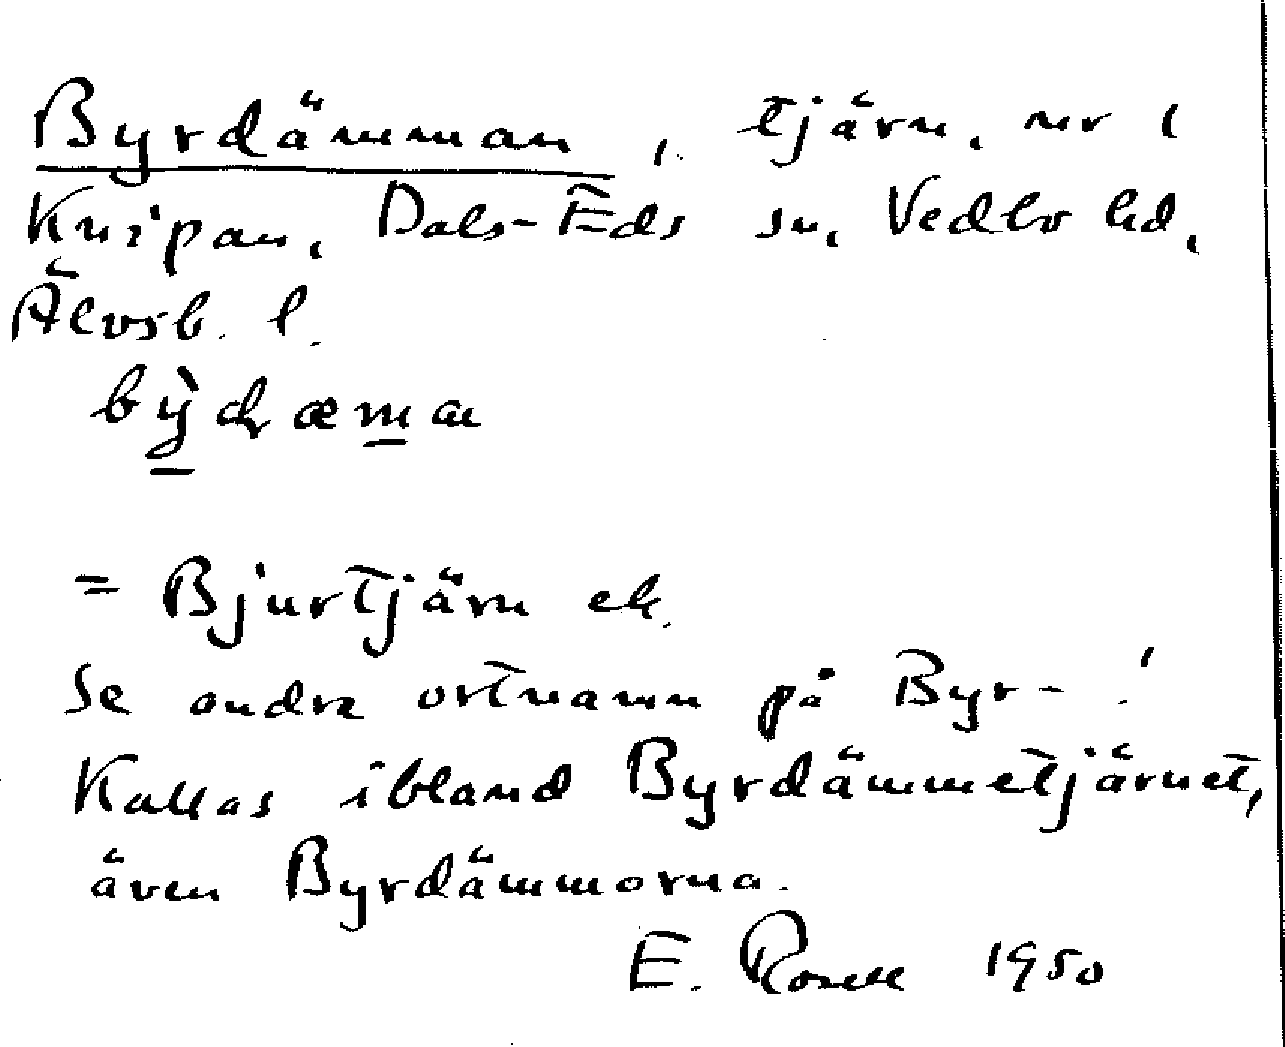 Byrdämman, tjärn, nr 1
Knipan, Dals-Eds sn, Vedbo hd,
Älvsb. l.
bỳdæman
= Bjurtjärn ek.
Se andra ortnamn på Byr-!
Kallas ibland Byrdämmetjärnet,
även Byrdämmorna.
E. Rosell 1950